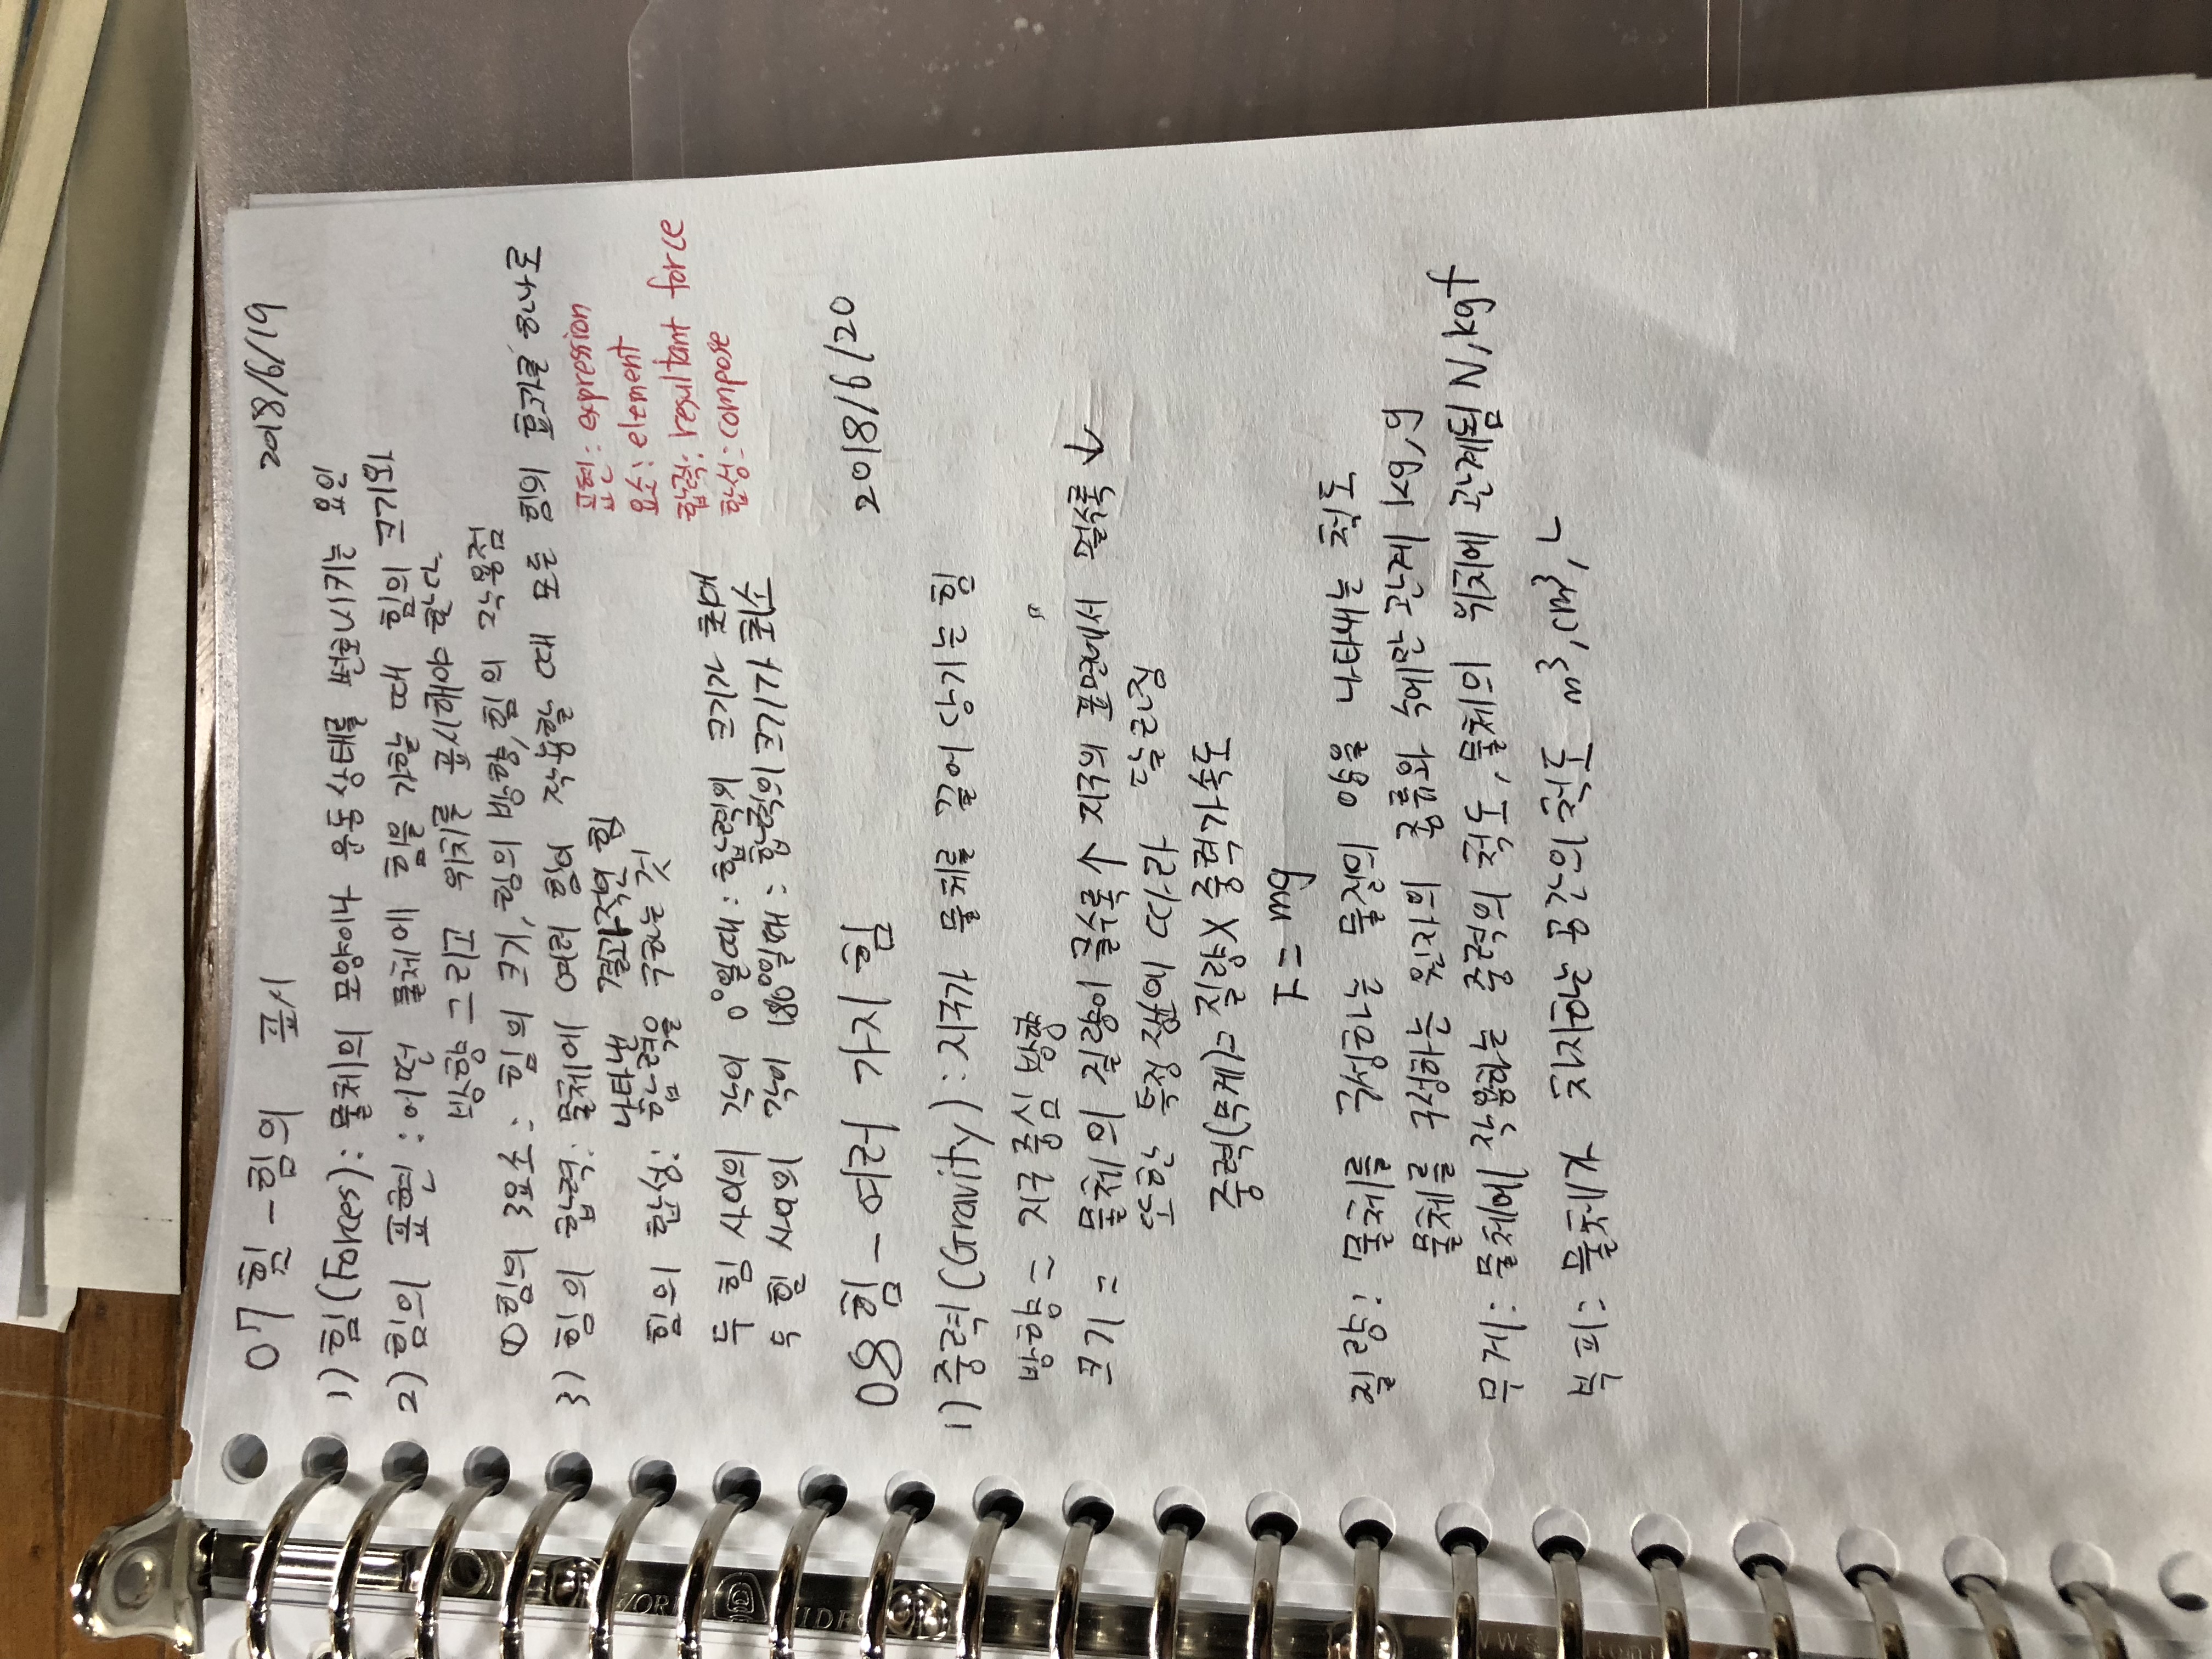 07 힘 - 힘의 표시 2018/6/19
1) 힘(Forces): 물체의 모양이나 운동 상태를 변화시키는 요인
2) 힘의 표현 : 어떤 물체에 힘을 가할 때 힘의 크기와
방향 그리고 위치를 표시해야 한다.
① 힘의 3요소 : 힘의 크기, 힘의 방향, 힘의 작용점
3) 힘의 합력: 물체에 여러 힘이 작용할 때 모든 힘의 효과를 하나로
나타낸 결과적인 힘
힘의 합성: 합력을 구하는 것
표현: expression
요소: element
합력: resultant force
합성: compose
두 힘 사이의 각이 0°일때 : 합력의 크기가 최대
두 힘 사이의 각이 180°일때 : 합력의 크기가 최소
08 힘 - 여러 가지 힘 2018/6/20
1) 중력(Gravity) : 지구가 물체를 끌어 당기는 힘
방향 = 지구 중심 방향
크기 = 물체의 질량이 클수록 ↑ 지구의 표면에서 멀수록 ↓
또한 특정 에 따라 달라짐
중력(무게)= 질량 X 중력가속도
F = mg
질량: 물체를 구성하는 물질의 양을 나타내는 척도
물체를 구성하는 원자의 종류와 수에만 관계 kg, g
무게: 물체에 작용하는 중력의 척도, 물체의 위치에 관계됨 N, kgf
부피: 물체가 차지하는 공간의 척도 m³, cm³, L